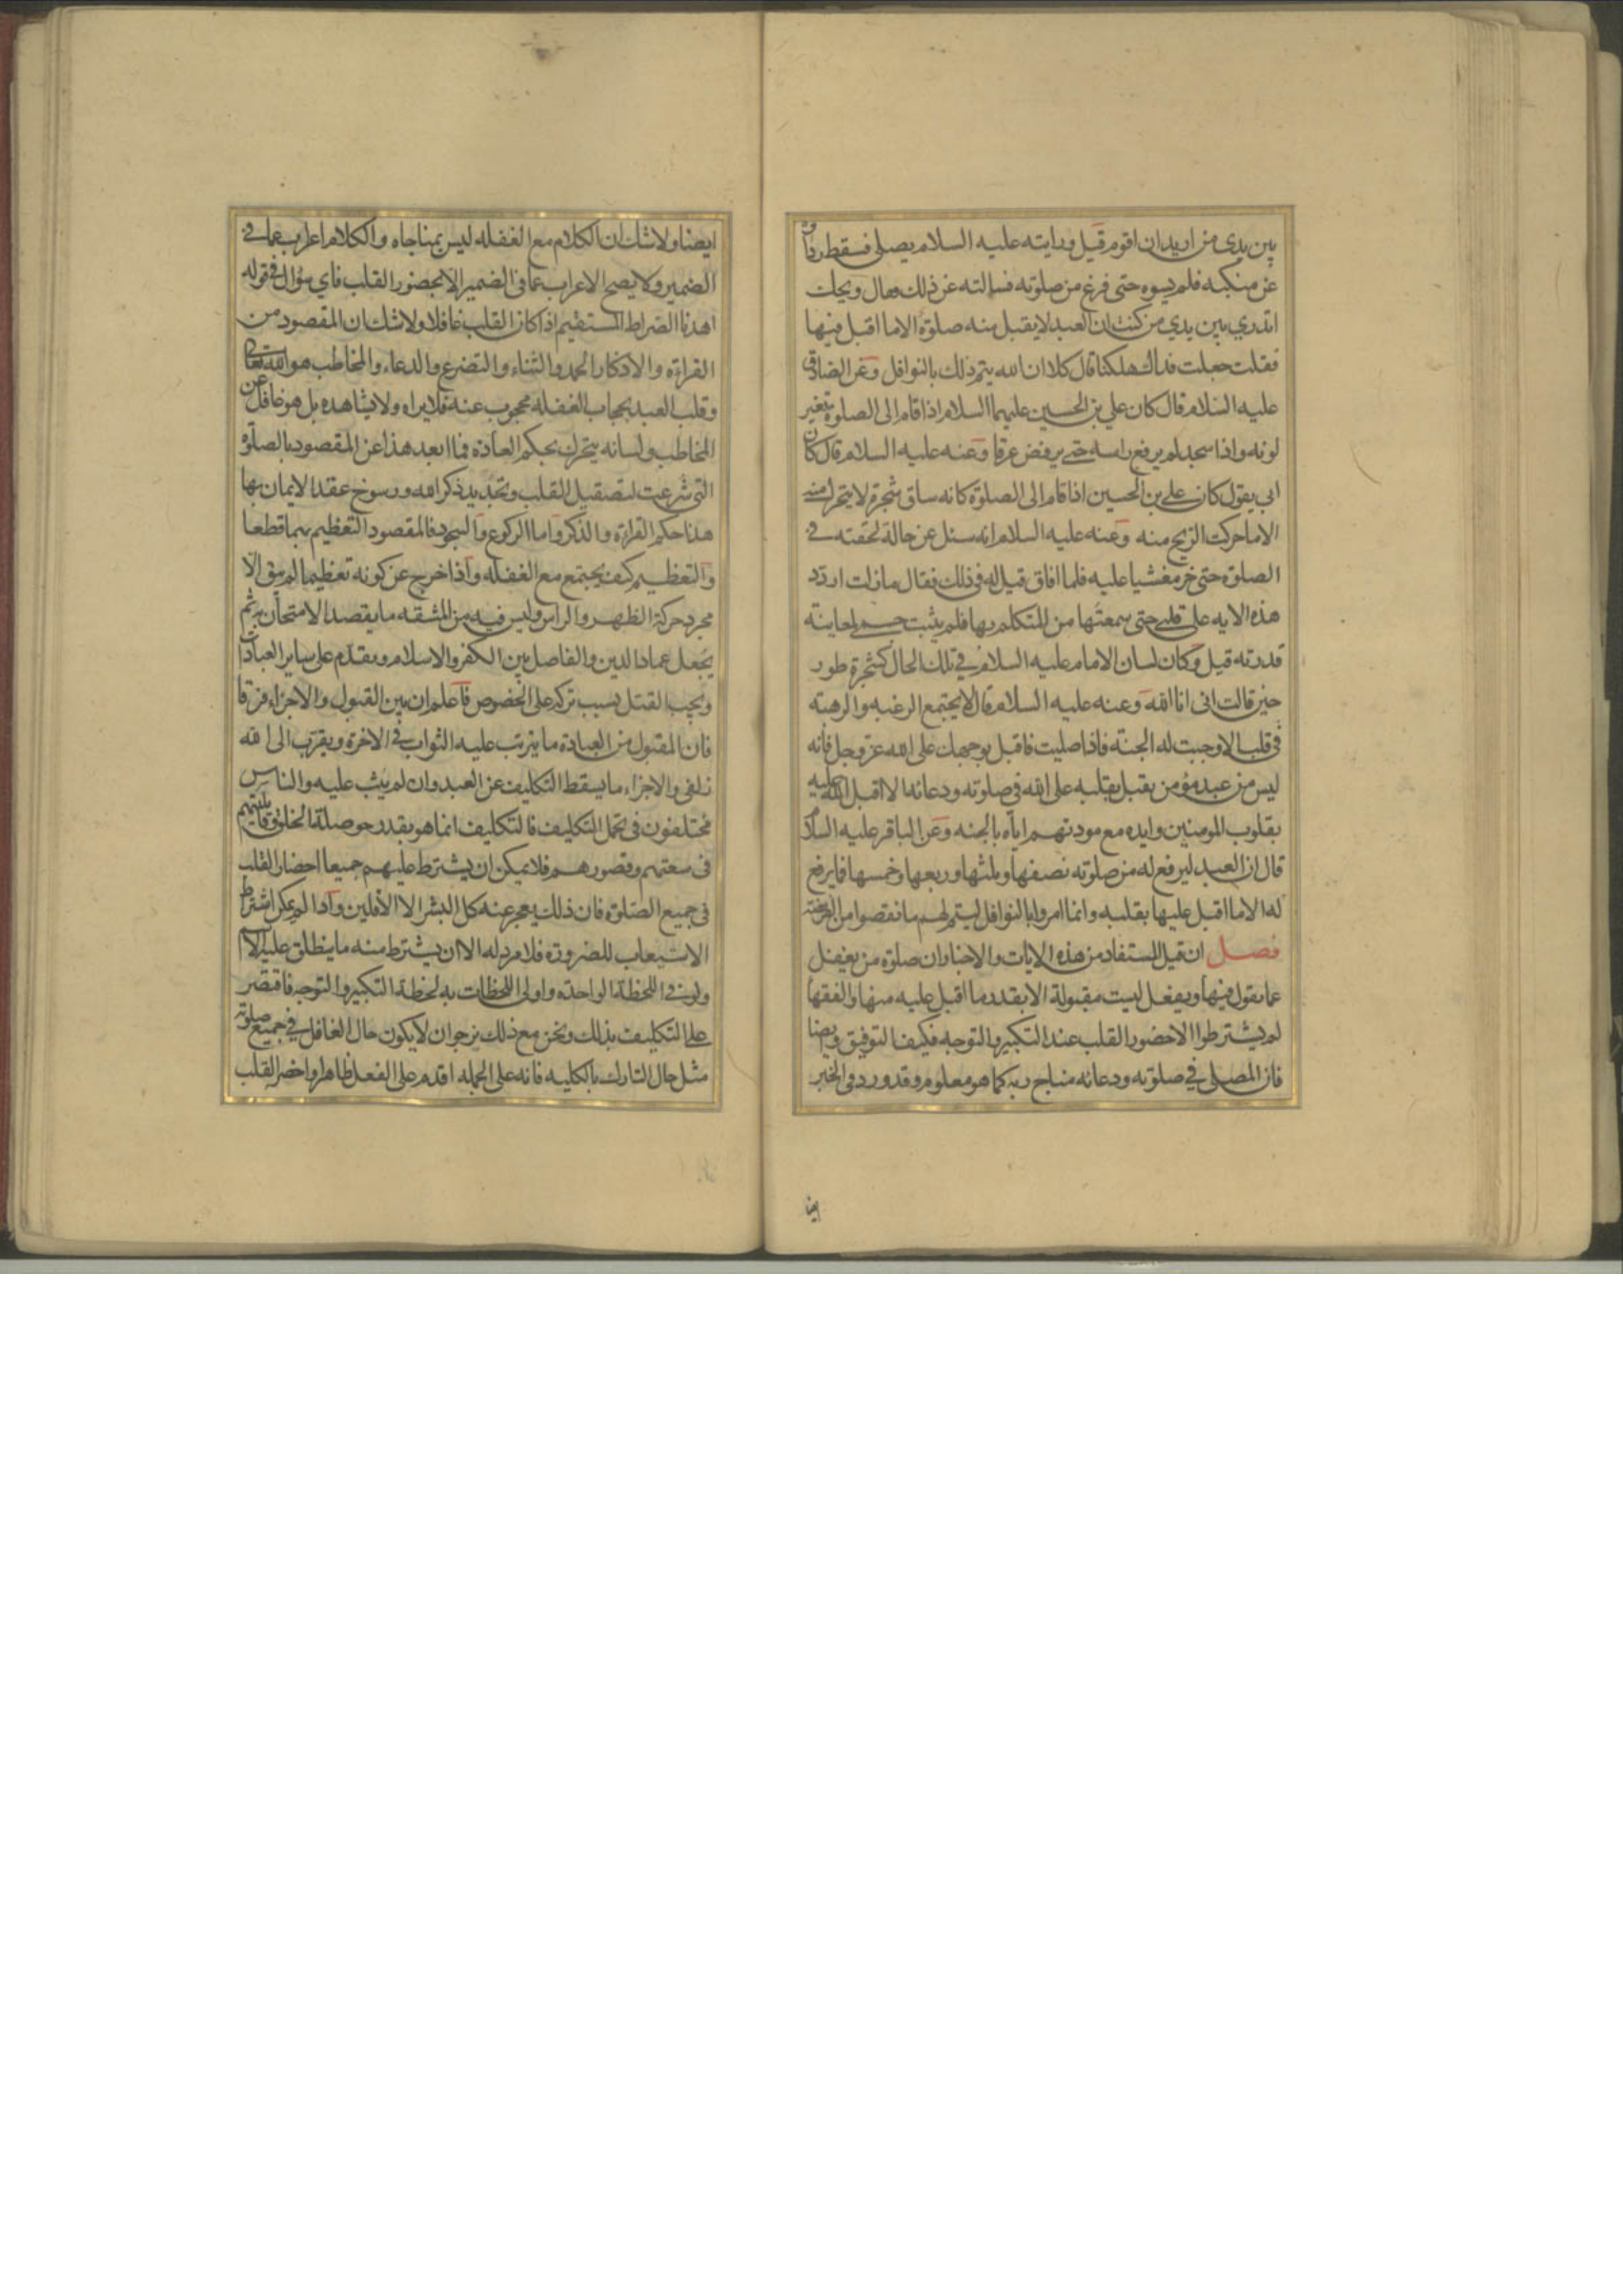 بين يدى من اريد ان اقوم قيل ورايته عليه السلام يصلى فسقط رداؤه
عن منكبه فلم يسوه حتى فرغ من صلوته فسالته عن ذلك فقال ويحك
اتدري بين يدي من كنت ان العبد لا يقبل منه صلوة الا ما اقبل فيها
فقلت جعلت فداك هلكنا قال كلا ان الله يتم ذلك بالنوافل وعن الصادق
عليه السلام قال كان علي بن الحسين عليهما السلام اذا قام الى الصلوة تغير
لونه واذا سجد لم يرفع راسه حتى يرفض عرقا وعنه عليه السلام قال كان
ابي يقول كان علي بن الحسين اذا قام الى الصلوة كانه ساق شجرة لا يتحرك منه
الا ما حركت الريح منه وعنه عليه السلام انه سئل عن حالة لحقته في
الصلوة حتى خر مغشيا عليه فلما افاق قيل له في ذلك فقال ما زلت اردد
هذه الايه على قلبي حتى سمعتها من المتكلم بها فلم يثبت جسمي لمعاينة
قدرته قيل وكان لسان الامام عليه السلام في تلك الحال كشجرة طور
حين قالت انى انا الله وعنه عليه السلام قال لا يجتمع الرغبه والرهبة
في قلب الا وجبت له الجنة فاذا صليت فاقبل بوجهك على الله عز وجل فانه
ليس من عبد مؤمن يقبل بقلبه على الله في صلوته ودعائه الا اقبل الله عليه
بقلوب المومنين وايده مع مودتهم اياه بالجنه وعن الباقر عليه السلام
قال ان العبد ليرفع له من صلوته نصفها وثلثها وربعها وخمسها فما يرفع
له الا ما اقبل عليها بقلبه وانما امروا بالنوافل ليتم لهم ما نقصوا من الفريضة
فصل ان قيل المستفاد من هذه الايات والاخبار ان صلوة من يغفل
عما يقول فيها ويفعل ليست مقبولة الا بقدر ما اقبل عليه منها والفقها
لم يشترطوا الا حضور القلب عند التكبير والتوجه فكيف التوفيق وايضا
فان المصلي في صلوته ودعائه مناج ربه كما هو معلوم وقد ورد في الخبر
ايضا
ايضا ولا شك ان الكلام مع الغفله ليس بمناجاه والكلام اعراب عما في
الضمير ولا يصح الاعراب عما في الضمير الا بحضور القلب فاي سؤال في قوله
اهدنا الصراط المستقيم اذا كان القلب غافلا ولا شك ان المقصود من
القراءة والاذكار الحمد والثناء والتضرع والدعاء والمخاطب هو الله تعالى
وقلب العبد بحجاب الغفله محجوب عنه فلا يراه ولا يشاهده بل هو غافل عن
المخاطب ولسانه يتحرك بحكم العادة فما ابعد هذا عن المقصود بالصلوة
التى شرعت لتصقيل القلب وتجديد ذكر الله ورسوخ عقد الايمان بها
هذا حكم القراءة والذكر واما الركوع والسجود فالمقصود التعظيم بهما قطعا
والتعظيم كيف يجتمع مع الغفله واذا خرج عن كونه تعظيما لم يبق الا
مجرد حركة الظهر والراس وليس فيه من المشقه ما يقصد الامتحان به ثم
يجعل عماد الدين والفاصل بين الكفر والاسلام ويقدم على ساير العبادات
ويجب القتل بسبب تركه على الخصوص فاعلم ان بين القبول والاجزاء فرقا
فان المقبول من العبادة ما يترتب عليه الثواب في الاخرة ويقرب الى الله
زلفى والاجزاء ما يسقط التكليف عن العبد وان لم يثب عليه والناس
مختلفون في تحمل التكليف فالتكليف انما هو بقدر حوصلة الخلق وقابليتهم
في سعتهم وقصورهم فلا يمكن ان يشترط عليهم جميعا احضار القلب
في جميع الصلوة فان ذلك يعجز عنه كل البشر الا الاقلين واذا لم يمكن اشتراط
الاستيعاب للضرورة فلا مرد له الا ان يشترط منه ما ينطلق عليه الاسم
ولو في اللحظة الواحدة واولى اللحظات به لحظة التكبير والتوجه فاقتصر
على التكليف بذلك ونحن مع ذلك نرجو ان لا يكون حال الغافل في جميع صلوته
مثل حال التارك بالكليه فانه على الجمله اقدم على الفعل ظاهرا واحضر القلب